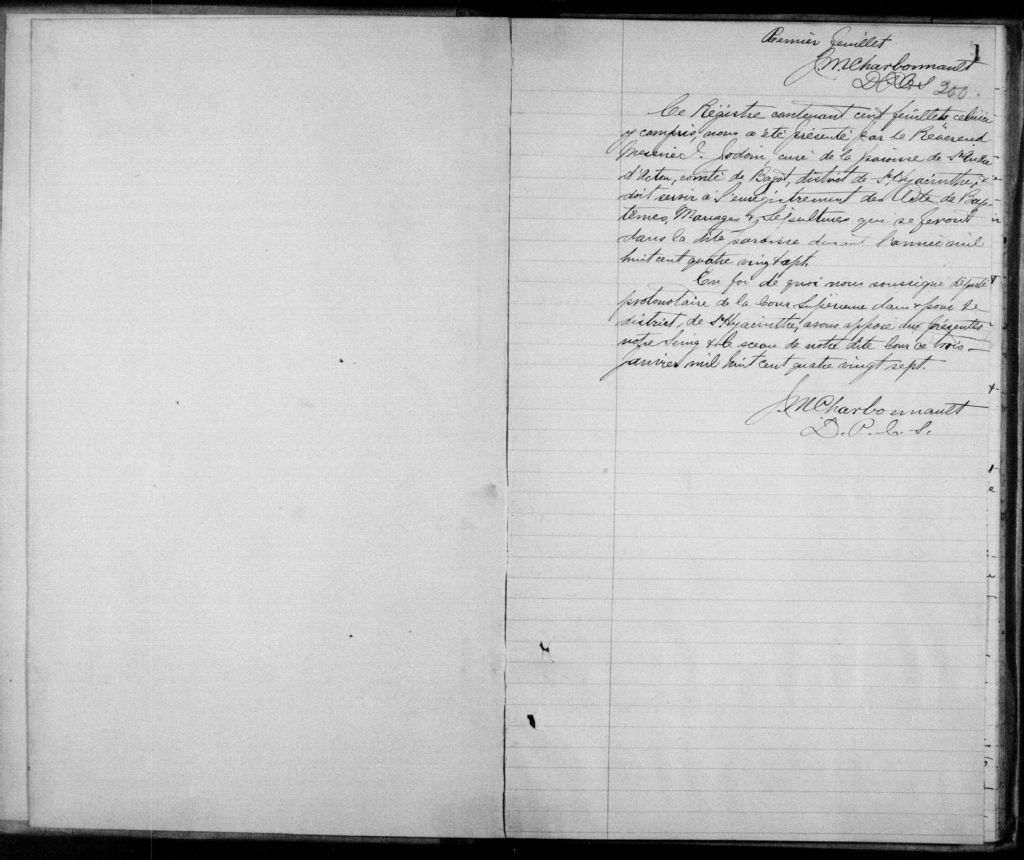 Premier feuillet
1
JMCharbonnault
D.P.C.S 200.
Ce Régistre contenant cent feuillets celui-ci
y compris, nous a été présenté par le Révérend
Jodoin, curé de la paroisse de St André
d'Acton, comté de Bagot, district de St Hyacinthe,
doit servir à l'enrégistrement des Acte de Bap-
têmes, Mariages & Sépultures qui se feront
dans la dite paroisse durant l'année mil
huit cent quatre vingt sept.
En foi de quoi nous soussigné député
protonotaire de la Cour Supérieure dans & pour le
district de St Hyacinthe, avons apposé aux présentes
notre seing & le sceau de notre dite Cour ce trois
janvier mil huit cent quatre vingt sept.
JMCharbonnault
D. P. C. S.